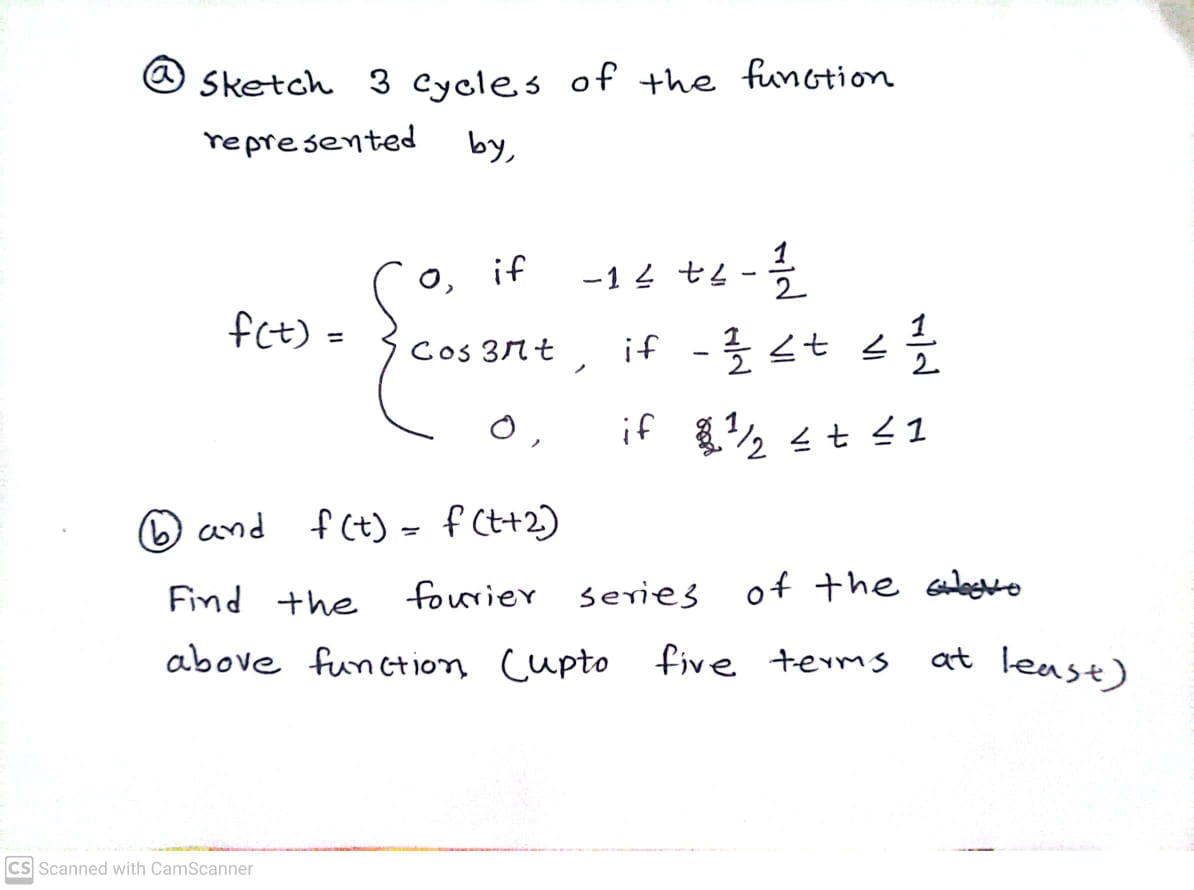 ⓐ Sketch 3 cycles of the function
represented by,
f(t) = { 0, if -1 ≤ t ≤ -1/2
cos 3πt, if -1/2 ≤ t ≤ 1/2
0, if 1/2 ≤ t ≤ 1
ⓑ and f(t) = f(t+2)
Find the fourier series of the
above function (upto five terms at least)
CS Scanned with CamScanner